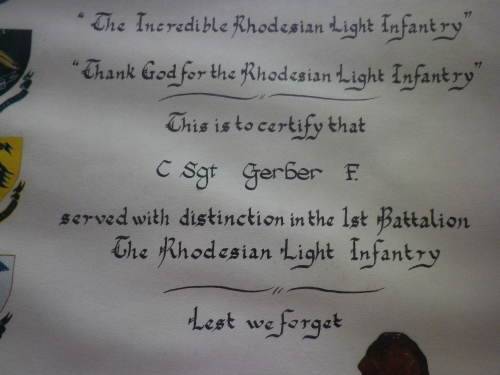 "The Incredible Rhodesian Light Infantry"
"Thank God for the Rhodesian Light Infantry"
This is to certify that
C Sgt Gerber F.
served with distinction in the 1st Battalion
The Rhodesian Light Infantry
Lest we forget